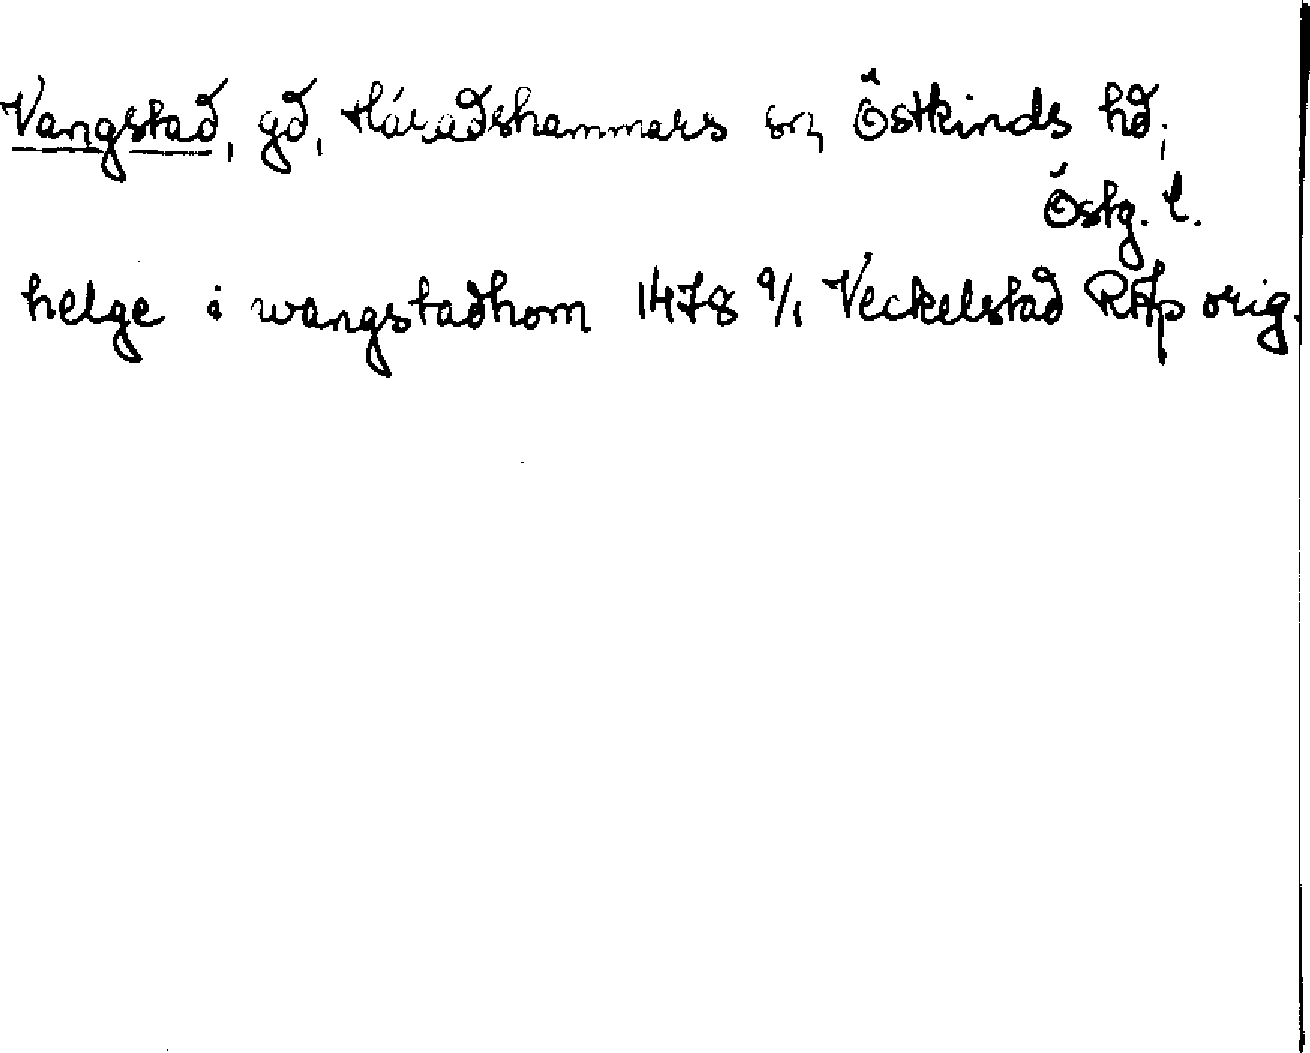 Vangstad, gd, Häradshammars sn, Östkinds hd,
Östg. l.
helge i wangstadhom 1478 9/1 Veckelstad RAp orig.